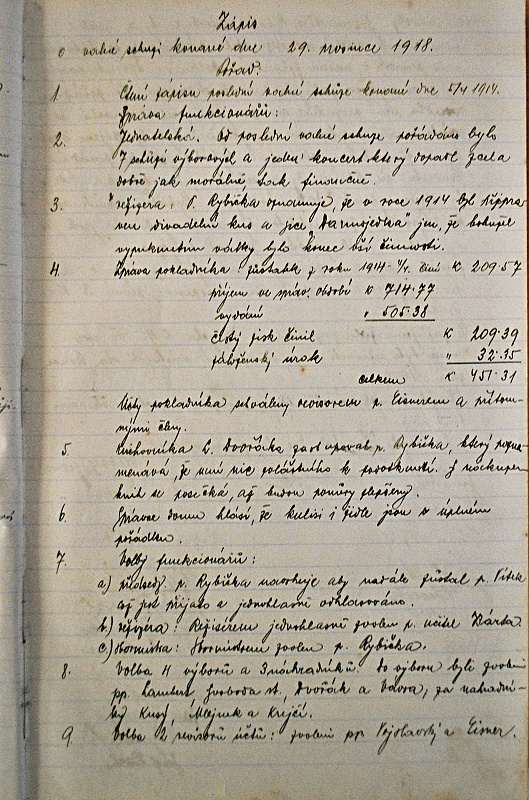 Zápis
o valné schůzi konané dne 29. prosince 1918.
Pořad.
1. Čtení zápisu poslední valné schůze konané dne 5/4 1914.
Zpráva funkcionářů:
2. Jednatelská. Od poslední valné schůze pořádáno bylo
7 schůzí výborových a jeden koncert který dopadl zcela
dobře jak morálně, tak finančně.
3. režiséra: P. Rybička oznamuje, že v roce 1914 byl připra-
ven divadelní kus a sice "Darmojedka" jen, že bohužel
vypuknutím války bylo konec vší činnosti.
4. Zpráva pokladníka: zůstatek z roku 1914 činí K 209.57
příjem ve správ. období K 714.77
vydání " 505.38
čistý zisk činil K 209.39
záloženský úrok " 32.35
celkem K 451.31
Účty pokladníka schváleny revisorem p. Eismerem a přítom-
nými členy.
5. Knihovníka L. Dvořáka zastupoval p. Rybička, který pozna-
menává, že není nic zvláštního k podotknutí. S nákupem
knih se posečká, až budou poměry zlepšeny.
6. Správce domu hlásí, že kulisy i židle jsou v úplném
pořádku.
7. Volby funkcionářů:
a) předsedy: p. Rybička navrhuje aby nadále zůstal p. Vítek
což jest přijato a jednohlasně odhlasováno.
b) režiséra: Režisérem jednohlasně zvolen p. učitel Bárta.
c) sbormistra: Sbormistrem zvolen p. Rybička.
8. Volba 4 výborů a 3 náhradníků: do výboru byli zvoleni
pp. Lambert, Svoboda st., Dvořák a Vávra; za náhradní-
ky Kusý, Mlejnek a Krejčí.
9. Volba 2 revisorů účtů: zvoleni pp. Vojslavský a Eismer.